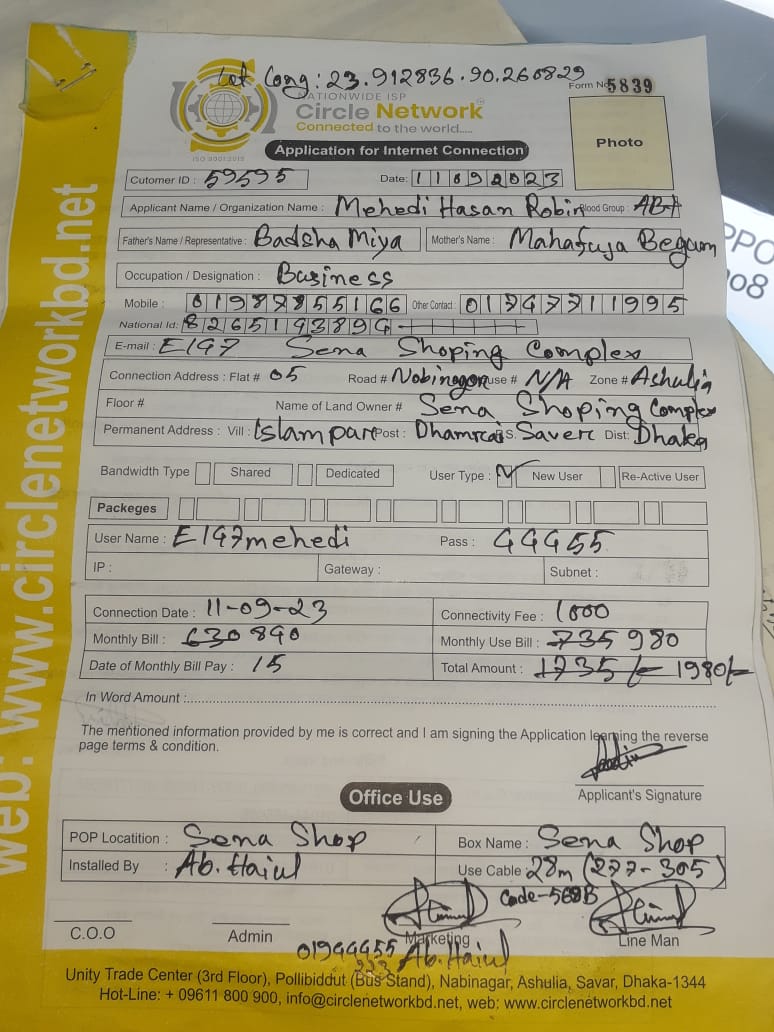 Lat Cong: 23.912836.90.260829
NATIONWIDE ISP
Form No 5839
Circle Network
Connected to the world.....
ISO 9001:2015
Application for Internet Connection
Photo
Cutomer ID : 59595 Date: 11092023
Applicant Name / Organization Name : Mehedi Hasan Robin Blood Group : AB+
Father's Name / Representative : Badsha Miya Mother's Name : Mahafuja Begum
Occupation / Designation : Business
Mobile : 01987855166 Other Contact : 01747711995
National Id: 8265193894
E-mail : E147 Sena Shoping Complex
Connection Address : Flat # 05 Road # Nobinagor use # N/A Zone # Ashulia
Floor # Name of Land Owner # Sena Shoping Complex
Permanent Address : Vill : Islampare Post : Dhamrai S. Saver Dist: Dhaka
Bandwidth Type Shared Dedicated User Type : New User Re-Active User
Packeges
User Name : E147mehedi Pass : 44455
IP : Gateway : Subnet :
Connection Date : 11-09-23 Connectivity Fee : 1000
Monthly Bill : 630 840 Monthly Use Bill : 735 980
Date of Monthly Bill Pay : 15 Total Amount : 1735/- 1980/-
In Word Amount :
The mentioned information provided by me is correct and I am signing the Application learning the reverse
page terms & condition.
Applicant's Signature
Office Use
POP Locatition : Sena Shop Box Name : Sena Shop
Installed By : Ab. Haiul Use Cable 28m (277-305)
Code-568B
C.O.O Admin Marketing Line Man
01944455 Ab. Haiul
223
Unity Trade Center (3rd Floor), Pollibiddut (Bus Stand), Nabinagar, Ashulia, Savar, Dhaka-1344
Hot-Line: + 09611 800 900, info@circlenetworkbd.net, web: www.circlenetworkbd.net
web: www.circlenetworkbd.net